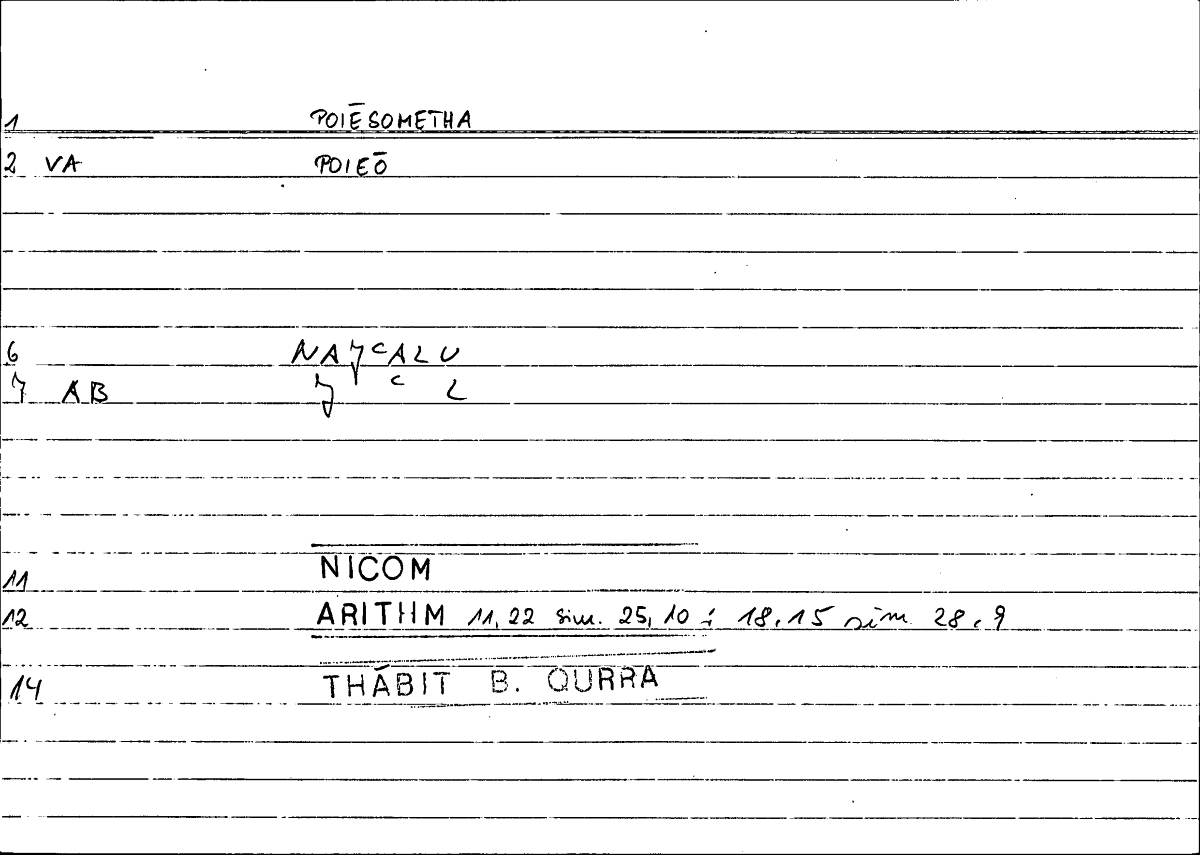 1 POIĒSOMETHA
2 VA POIEŌ
6 NAJᶜALU
7 AB J ᶜ L
11 NICOM
12 ARITHM 11,22 sim. 25,10 ; 18,15 sim 28,9
14 THĀBIT B. QURRA